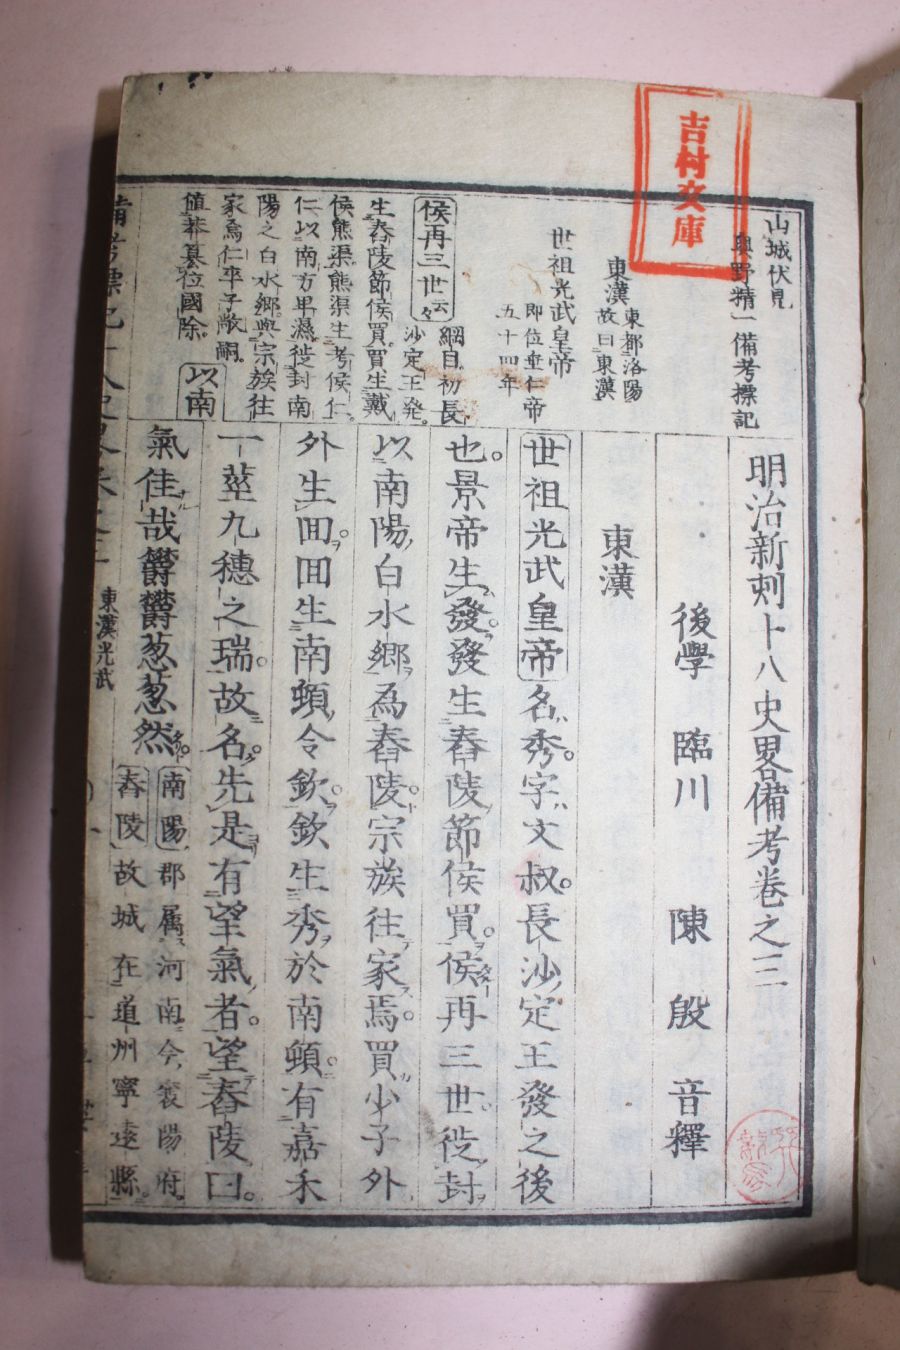 吉村文庫
山城伏見
奥野精一備考標記
東漢 東都洛陽
故曰東漢
世祖光武皇帝
即位垂仁帝
五十四年
侯再三世云々 綱目初長
沙定王発
生舂陵節侯買買生戴
侯熊渠熊渠生考侯仁
仁以南方卑濕徙封南
陽之白水郷與宗族往
家焉仁卒子敞嗣
值莽簒位國除 以南
明治新刻十八史畧備考巻之三
後學 臨川 陳殷 音釋
東漢
世祖光武皇帝名秀。字文叔。長沙定王發之後
也。景帝生發。發生舂陵節侯買。侯再三世。徙封
以南陽白水郷為舂陵。宗族往家焉。買少子外
外生回。回生南頓令欽。欽生秀於南頓。有嘉禾
一莖九穗之瑞。故名。先是有望氣者。望舂陵曰。
氣佳哉鬱鬱葱葱然。 南陽郡属河南今襄陽府
舂陵故城在道州寧遠縣
東漢光武